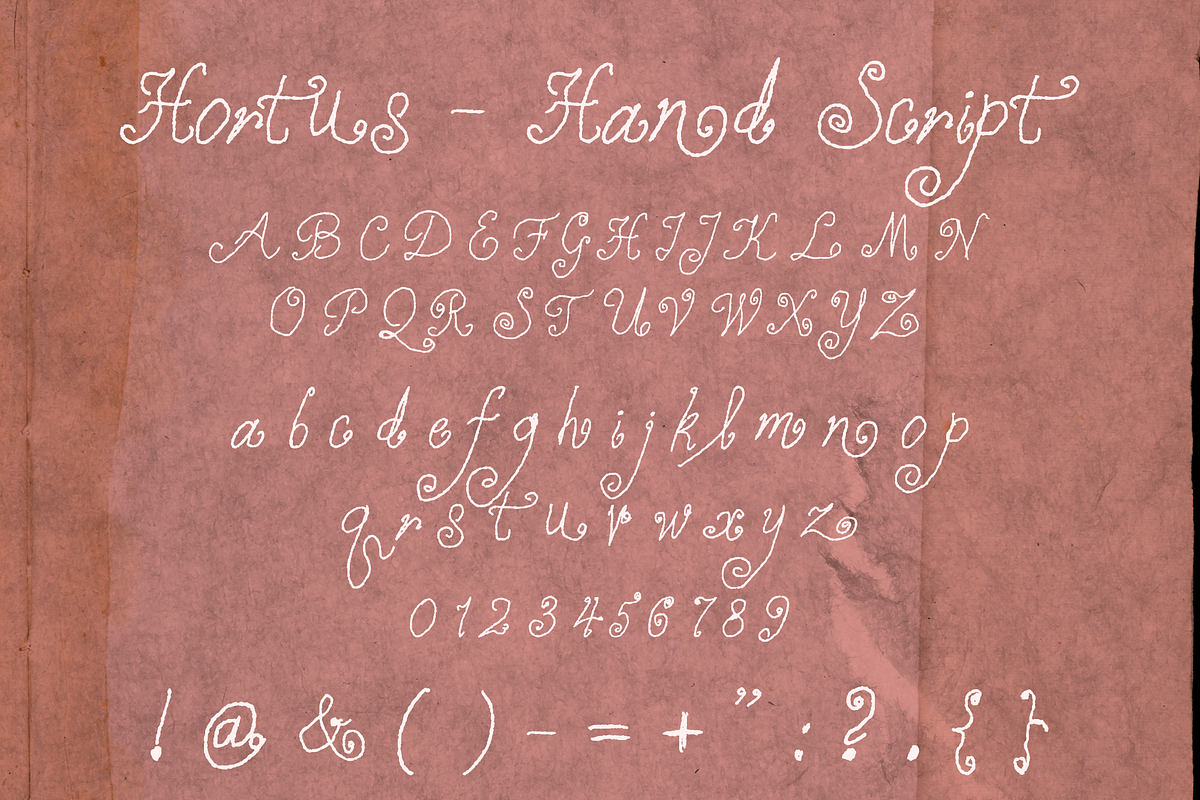 Hortus - Hand Script
A B C D E F G H I J K L M N
O P Q R S T U V W X Y Z
a b c d e f g h i j k l m n o p
q r s t u v w x y z
0 1 2 3 4 5 6 7 8 9
! @ & ( ) - = + " : ? . { }